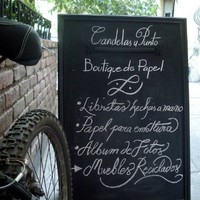 Candelas y Punto
Boutique de Papel
• Libretas hechas a mano
• Papel para envoltura
• Álbum de Fotos
→ Muebles Reciclados